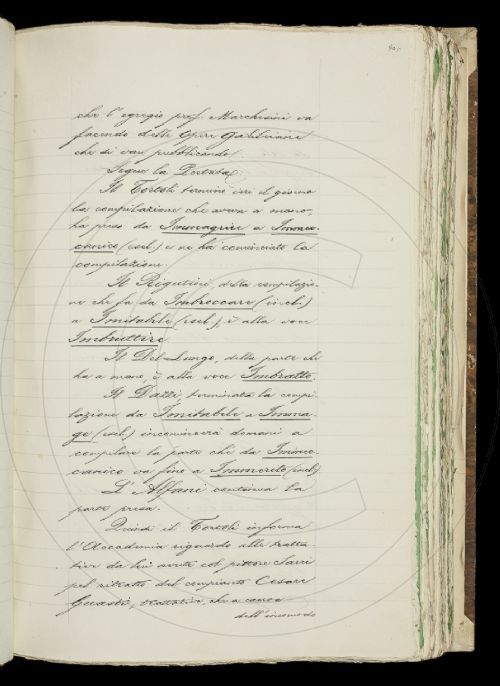 che l'egregio prof. Marchesini va
facendo delle Opere Galileiane
che si van pubblicando.
Segue la
Il Tortoli terminò ieri il giorno
la compilazione che aveva a mano,
ha preso da Immagrire a Immec-
canico (escl.) e ne ha cominciato la
compilazione.
Il Rigutini, della compilazio-
ne che fa da Imbeccare (incl.)
a Imitabile (escl.), è alla voce
Imbruttire.
Il Del-Lungo, della parte che
ha a mano, è alla voce Imbratto.
Il Dazzi, terminata la compi-
lazione da Imitabile a Imma-
ge (escl.) incomincerà domani a
compilare la parte che da Immec-
canico va fino a Immerito (incl.)
L'Alfani continua la
parte presa.
Quindi il Tortoli informa
l'Accademia riguardo alle tratta-
tive da lui avute col pittore Sarri
pel ritratto del compianto Cesare
Guasti, trattative, che a causa
dell'incomodo